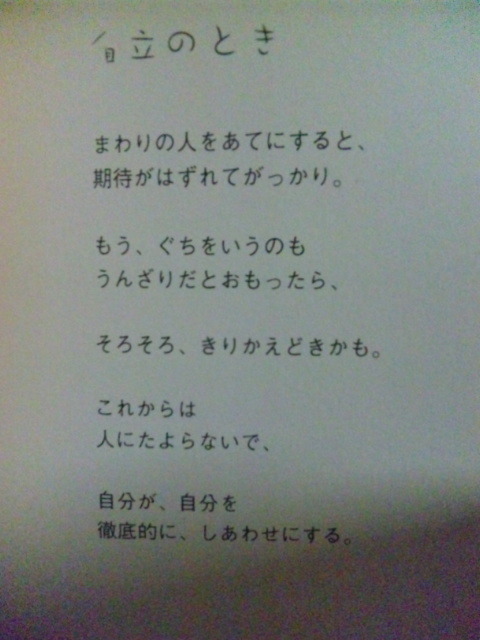 自立のとき
まわりの人をあてにすると、
期待がはずれてがっかり。
もう、ぐちをいうのも
うんざりだとおもったら、
そろそろ、きりかえどきかも。
これからは
人にたよらないで、
自分が、自分を
徹底的に、しあわせにする。